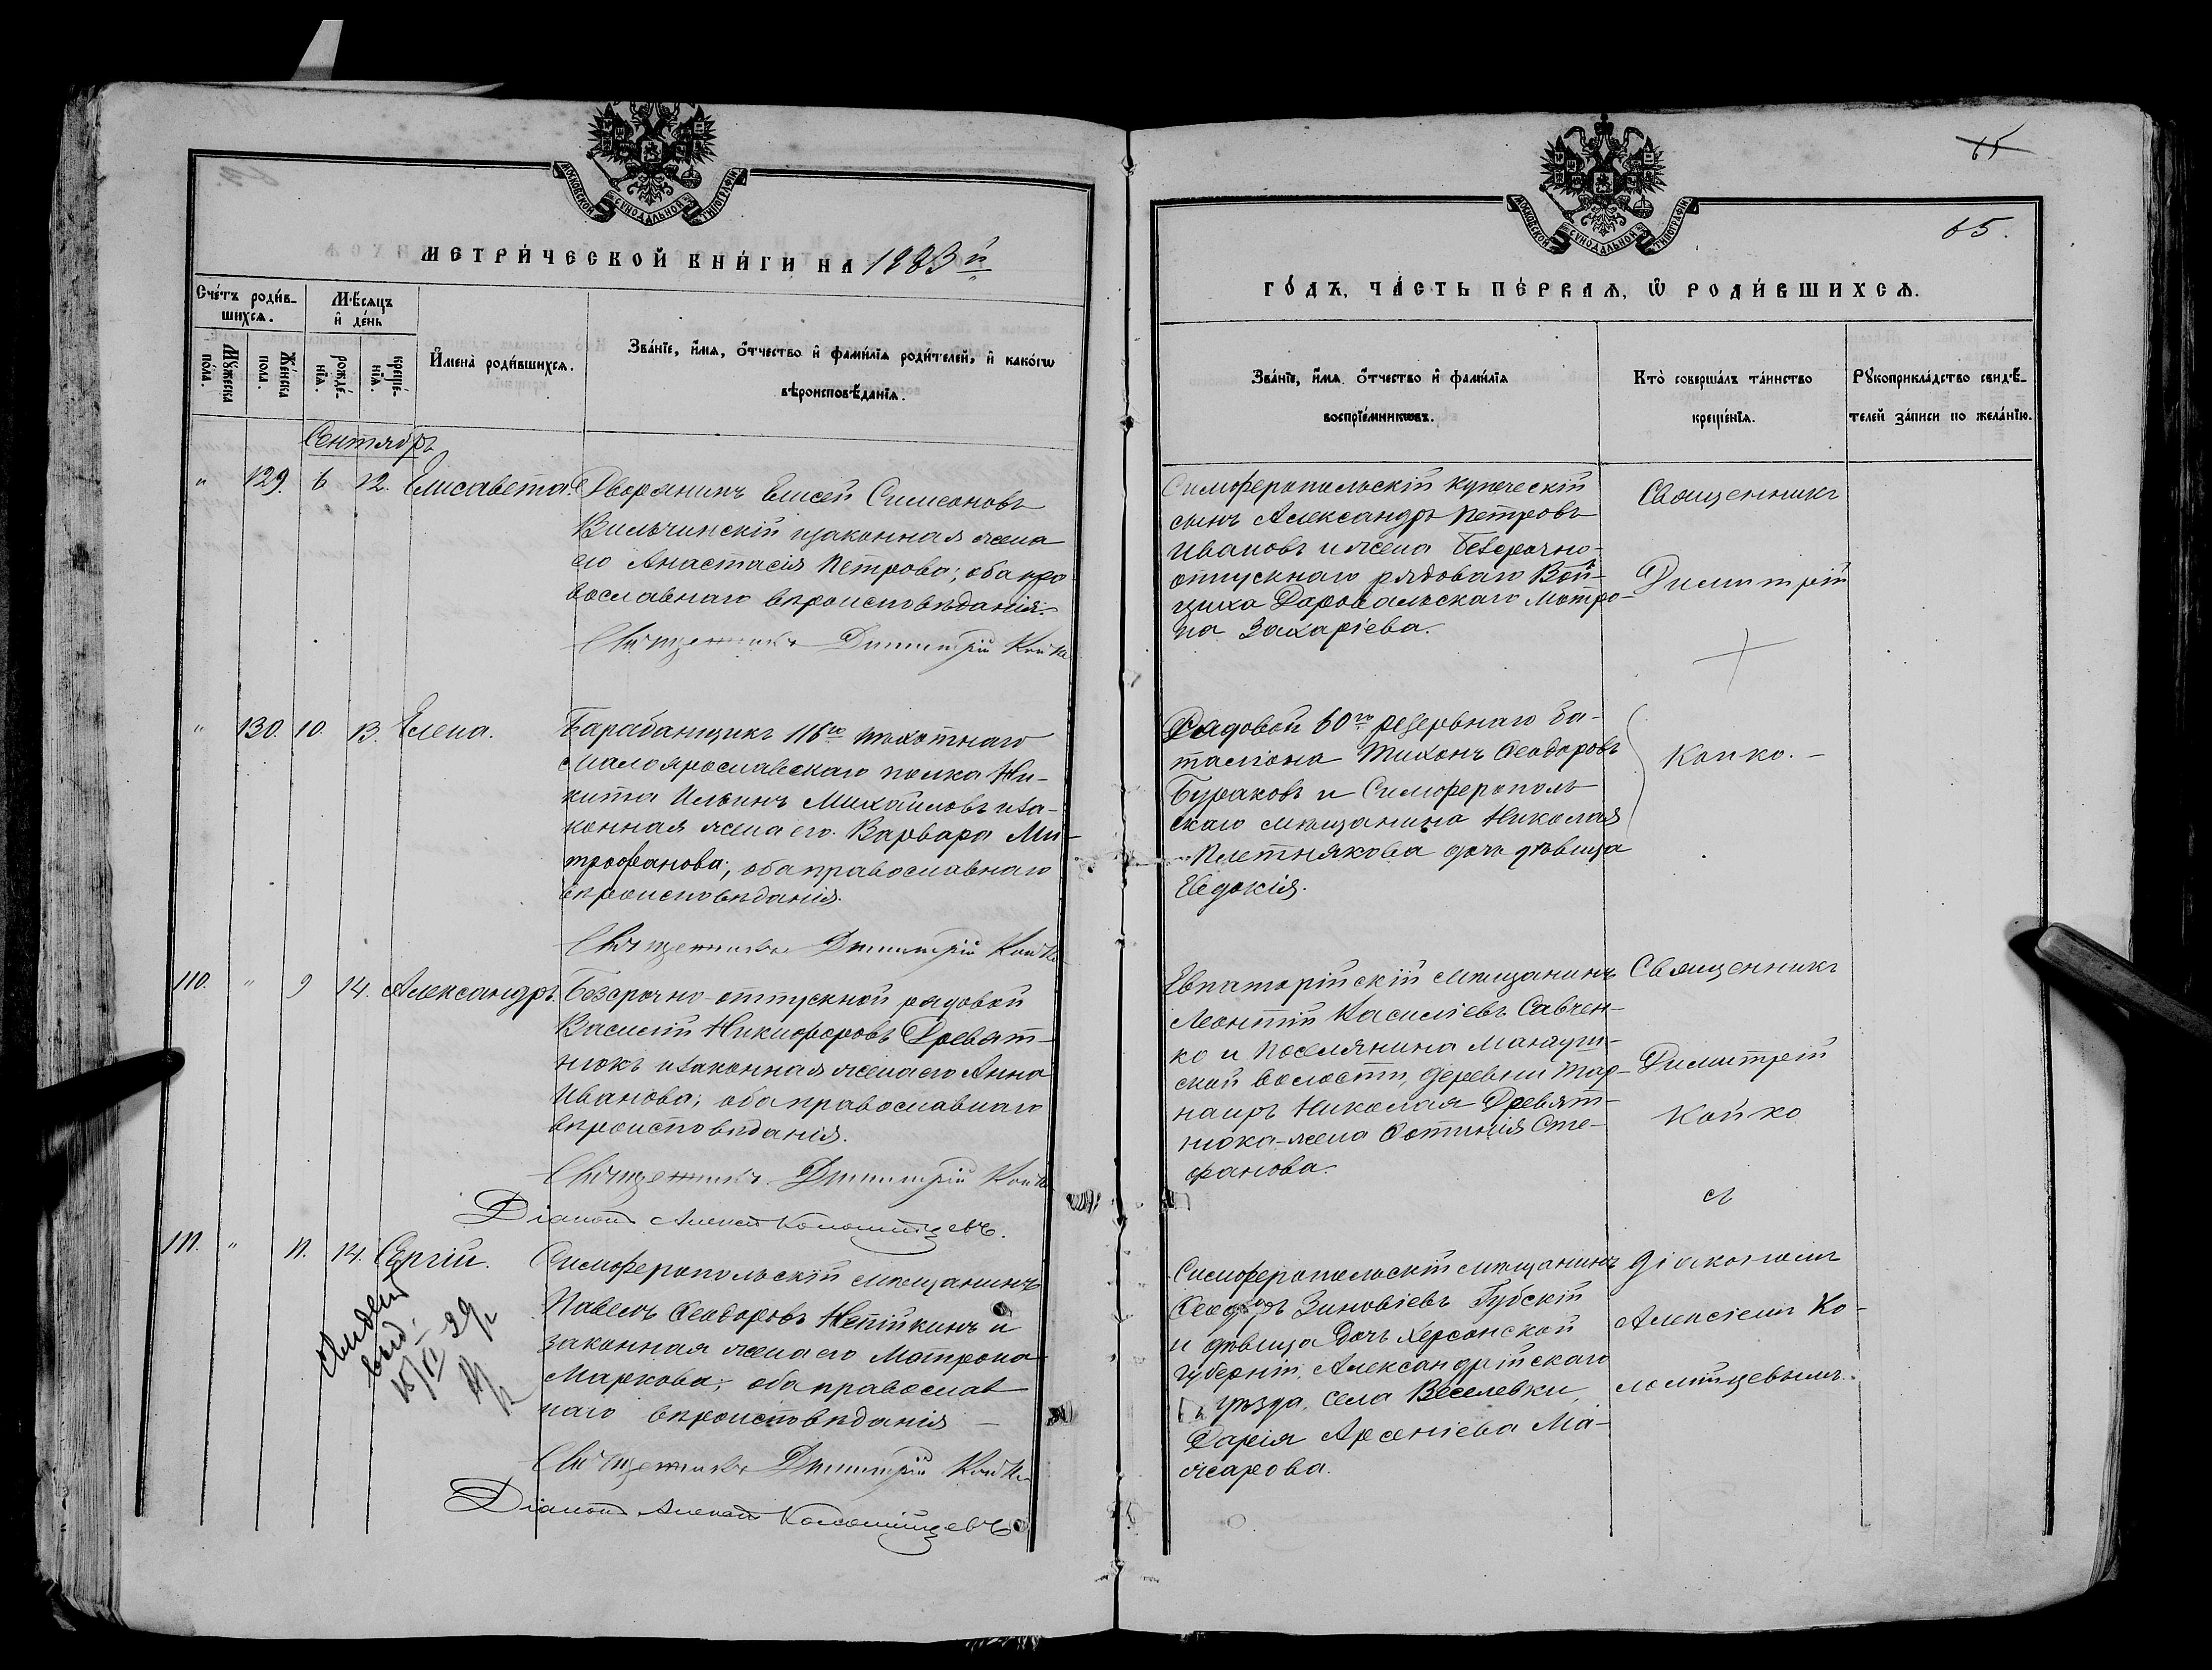 МОСКОВСКОЙ СѴНОДАЛЬНОЙ ТИПОГРАФІИ
МЕТРИ́ЧЕСКОЙ КНИ́ГИ НА 1883й
Сче́тъ роди́в-
шихсѧ.
Мѣ́сѧцъ
и҆ де́нь
Мꙋ́жеска
по́ла.
Же́нска
пола.
рожде́-
нїѧ.
креще́-
нїѧ.
И҆мена̀ роди́вшихсѧ.
Зва́нїе, и҆́мѧ, ѻ҆́тчество и҆ фами́лїѧ роди́телей, и҆ како́гѡ
вѣроисповѣ́данїѧ.
Сентябрь
" 129. 6 12. Елисавета.
Дворянинъ Елисей Симеоновъ
Вильчинскій изаконная жена
его Анастасія Петрова; оба пра
вославнаго вѣроисповѣданія.
Священникъ Димитрій Койко
" 130. 10. 13. Елена.
Барабанщикъ 116го пѣхотнаго
Малоярославскаго полка Ни-
кита Ильинъ Михайловъ иза-
конная жена его Варвара Ми-
трофанова; оба православнаго
вѣроисповѣданія.
Священникъ Димитрій Койко
110. " 9 14. Александръ.
Безсрочно-отпускной рядовой
Василій Никифоровъ Древят-
нюкъ изаконная жена его Анна
Иванова; оба православнаго
вѣроисповѣданія.
Священникъ Димитрій Койко
Діаконъ Алексій Коломійцевъ.
111. " 11. 14. Сергій.
Симферопольскій мѣщанинъ
Павелъ Ѳеодоровъ Непійкинъ и
законная жена его Матрона
Маркова; оба православ
наго вѣроисповѣданія —
Священникъ Димитрій Койко
Діаконъ Алексій Коломійцевъ
выд.
29/
65
65.
МОСКОВСКОЙ СѴНОДАЛЬНОЙ ТИПОГРАФІИ
ГО́ДЪ, ЧА́СТЬ ПЕ́РВАѦ, Ѡ҆ РОДИ́ВШИХСѦ.
Зва́нїе, и҆́мѧ, ѻ҆́тчество и҆ фами́лїѧ
воспрїе́мникѡвъ.
Кто̀ соверша́лъ та́инство
креще́нїѧ.
Рꙋкоприкла́дство свидѣ́-
телей за́писи по жела́нїю.
Симферопольскій купеческій
сынъ Александръ Петровъ
Ивановъ и жена безсрочно-
отпускнаго рядоваго Вой-
циха Доровальскаго Матро-
на Захаріева.
Священникъ
Димитрій
Койко. —
Рядовой 60го резервнаго ба-
таліона Тихонъ Ѳеодоровъ
Бураковъ и Симферополь-
скаго мѣщанина Николая
Плетнякова дочь дѣвица
Евдокія.
Евпаторійскій мѣщанинъ
Леонтій Василіевъ Савчен-
ко и поселянина Мангуш-
ской волости, деревни Тар-
наиръ Николая Древят-
нюка-жена Фотинія Сте-
фанова.
Священникъ
Димитрій
Койко
съ
Симферопольскій мѣщанинъ
Ѳеодоръ Зиновіевъ Губскій
и дѣвица дочь Херсонской
губерніи, Александрійскаго
уѣзда, села Веселевки,
Дарія Арсеніева Ма-
жарова.
діакономъ
Алексіемъ Ко-
ломійцевымъ.